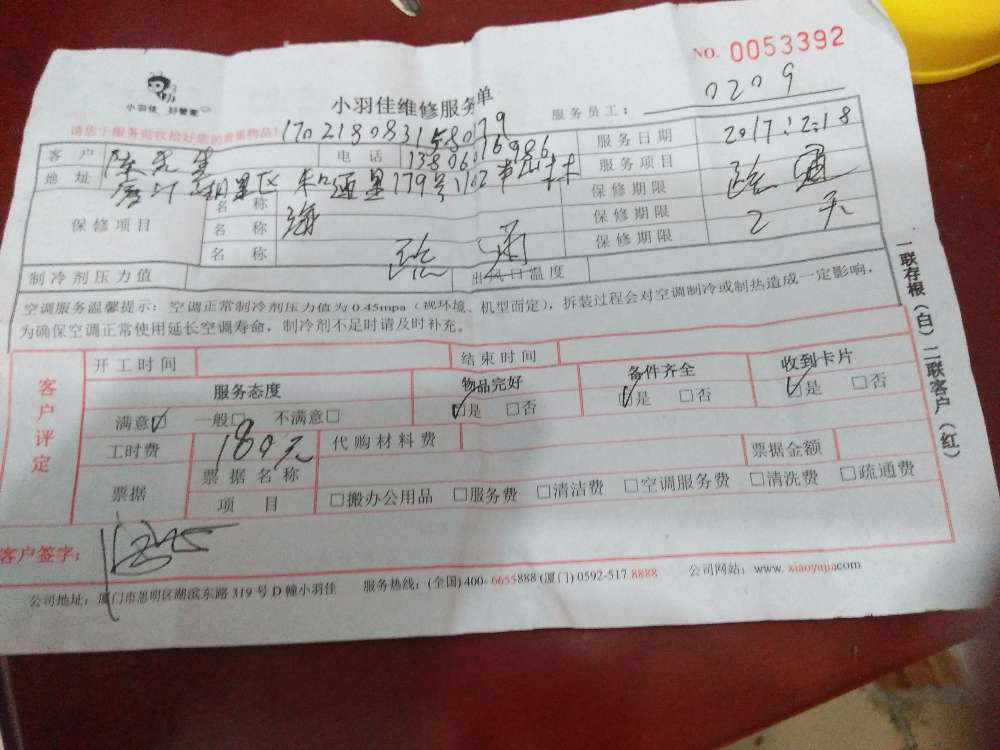 NO. 0053392
小羽佳 好管家
小羽佳维修服务单
服务员工: 0209
请您于服务前收拾好您的贵重物品!
服务日期 2017.12.18
客户 陈先生 电话
地址 湖里区 和通里179号1102
服务项目 疏通
保修项目
名称
保修期限 2天
名称
保修期限
名称 疏通
保修期限
制冷剂压力值 出风口温度
空调服务温馨提示: 空调正常制冷剂压力值为0.45mpa(视环境、机型而定),拆装过程会对空调制冷或制热造成一定影响,
为确保空调正常使用延长空调寿命,制冷剂不足时请及时补充。
一联存根(白)二联客户(红)
客户评定
开工时间 结束时间
服务态度 物品完好 备件齐全 收到卡片
满意☑ 一般□ 不满意□ ☑是 □否 ☑是 □否 ☑是 □否
工时费 180元 代购材料费
票据 票据名称 票据金额
项目 □搬办公用品 □服务费 □清洁费 □空调服务费 □清洗费 □疏通费
客户签字:
公司地址: 厦门市思明区湖滨东路319号D幢小羽佳 服务热线: (全国)400-6655888 (厦门)0592-5178888 公司网站: www.xiaoyujia.com